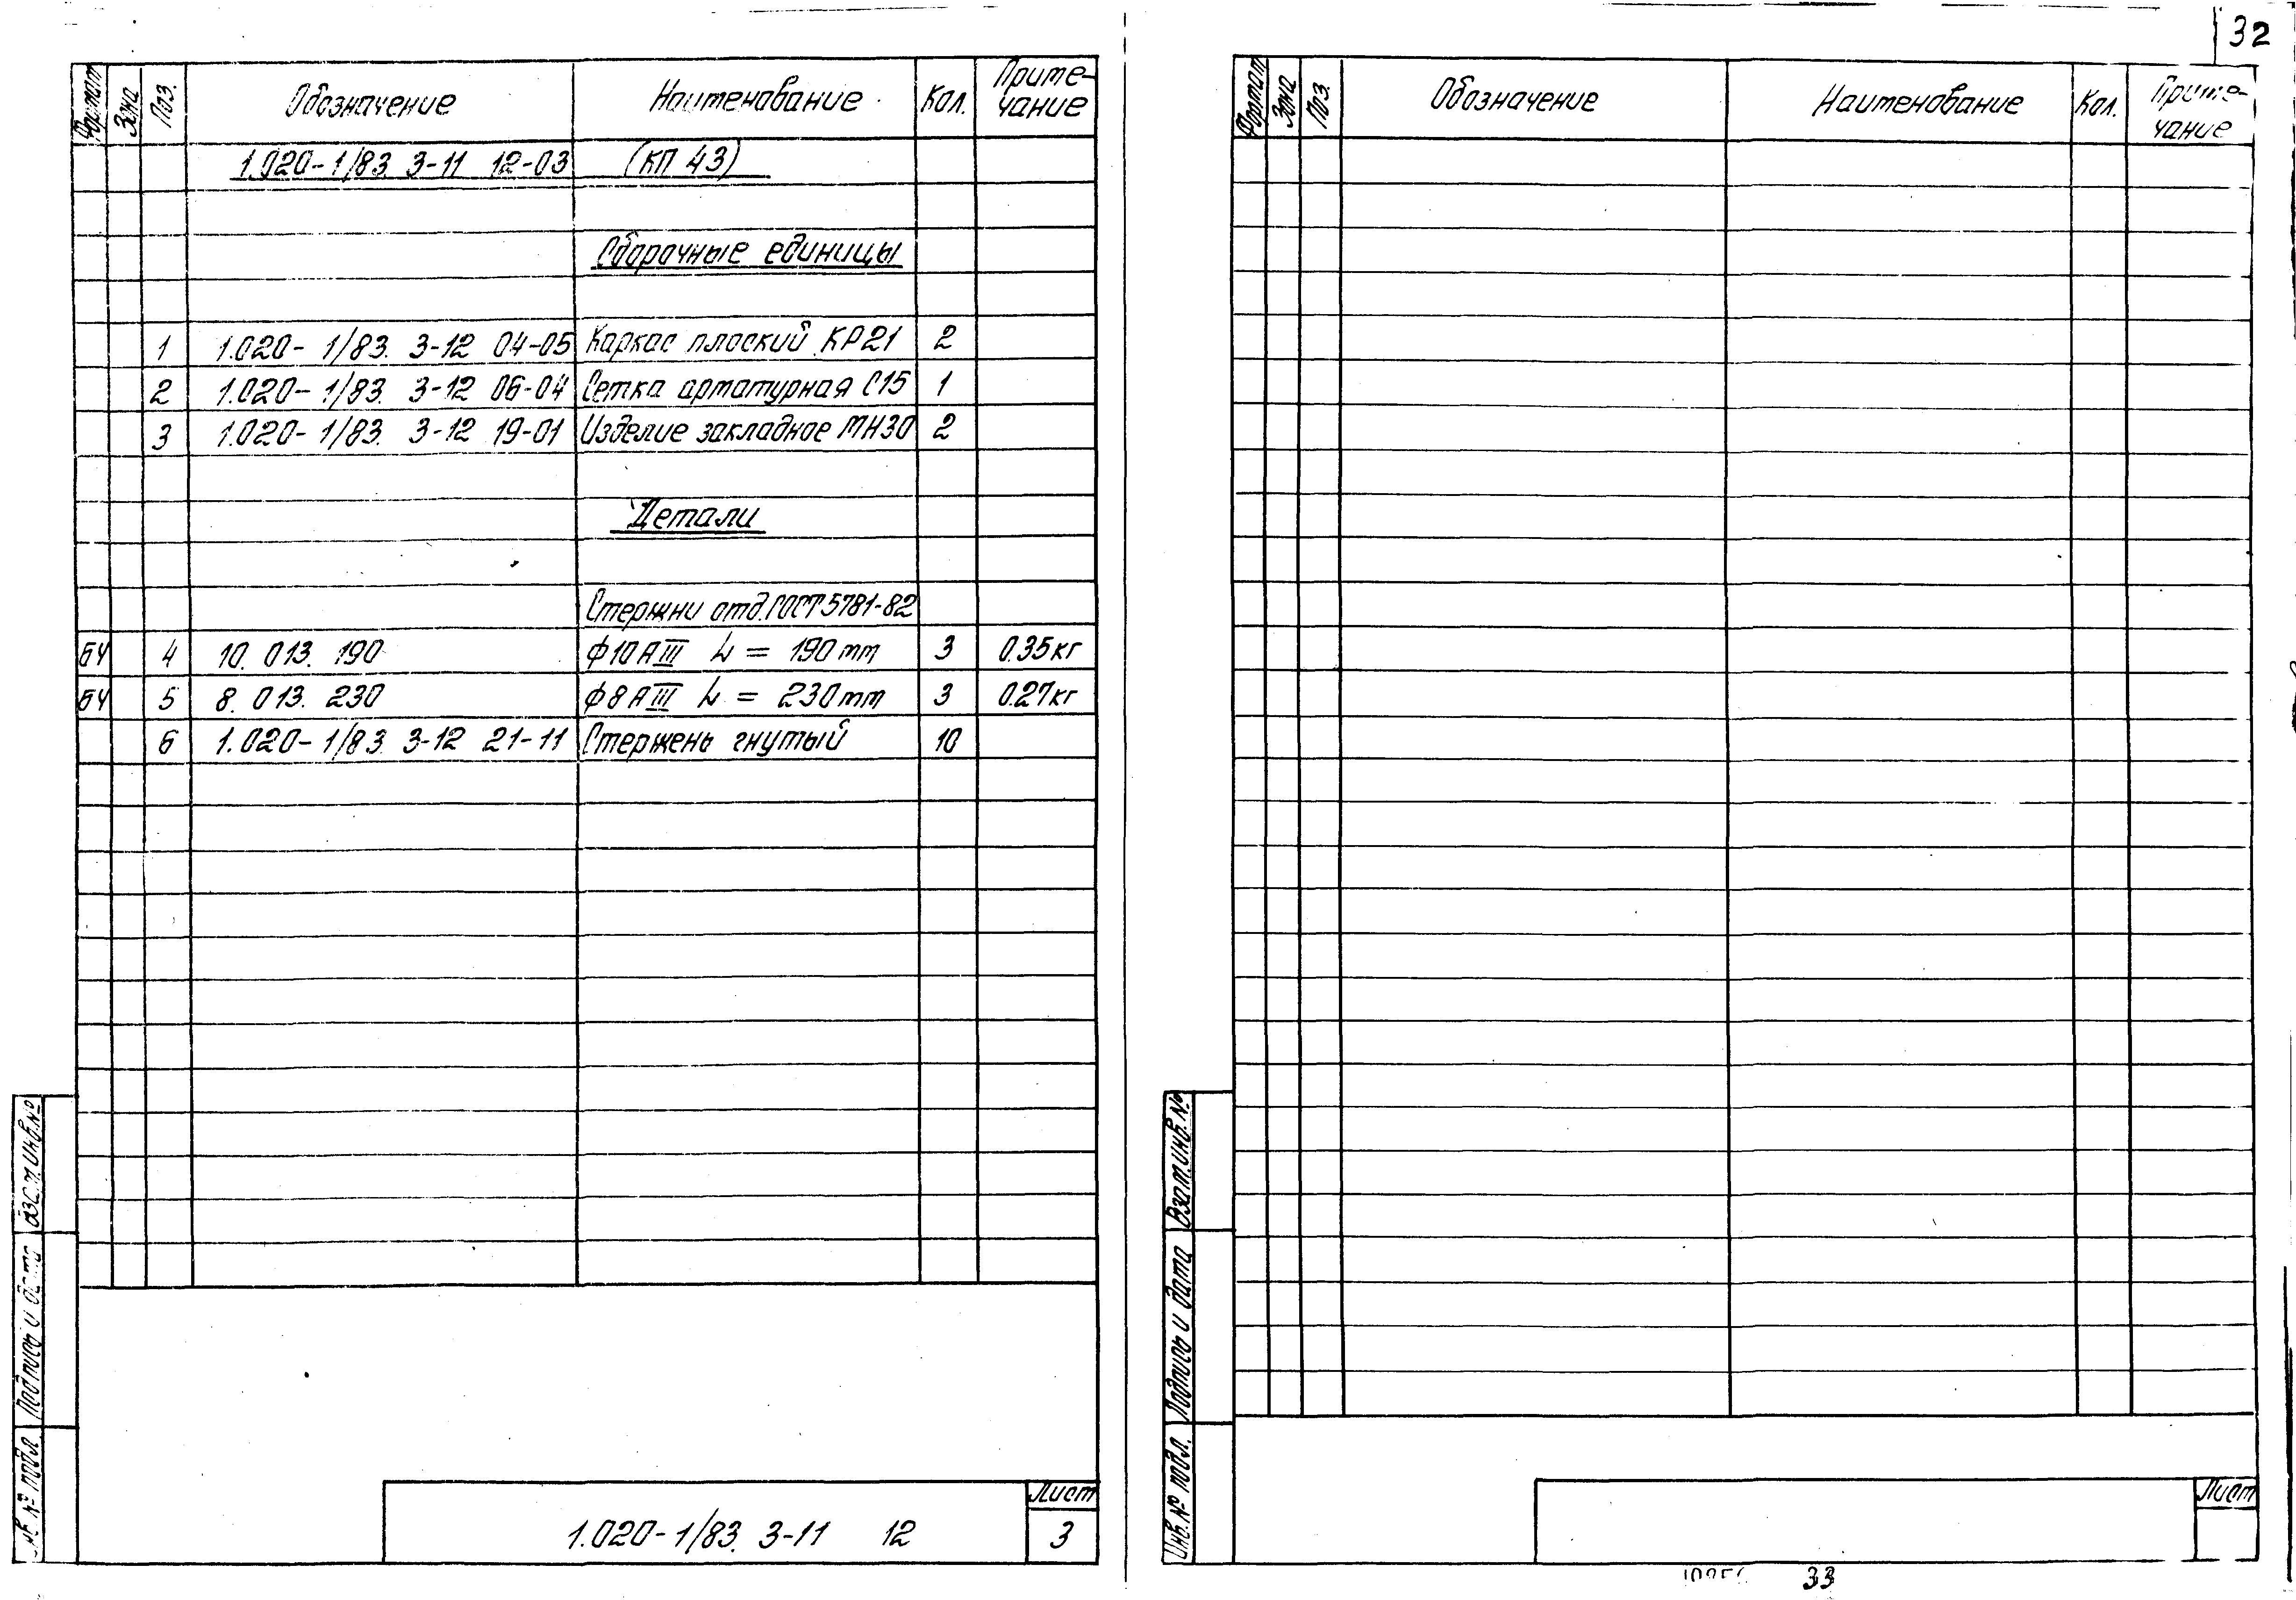 32
Формат Зона Поз. Обозначение Наименование Кол. Приме-
чание
1.020-1/83. 3-11 12-03 (КП 43)
Сборочные единицы
1 1.020-1/83. 3-12 04-05 Каркас плоский КР21 2
2 1.020-1/83. 3-12 06-04 Сетка арматурная С15 1
3 1.020-1/83. 3-12 19-01 Изделие закладное МН30 2
Детали
Стержни отд. ГОСТ 5781-82
БЧ 4 10. 013. 190 ϕ10АIII L = 190мм 3 0.35кг
БЧ 5 8. 013. 230 ϕ8АIII L = 230мм 3 0.27кг
6 1.020-1/83. 3-12 21-11 Стержень гнутый 10
Взам.инв.№
Подпись и дата
Инв.№ подл.
Лист
1.020-1/83. 3-11 12 3
Формат Зона Поз. Обозначение Наименование Кол. Приме-
чание
Взам.инв.№
Подпись и дата
Инв.№ подл.
Лист
33